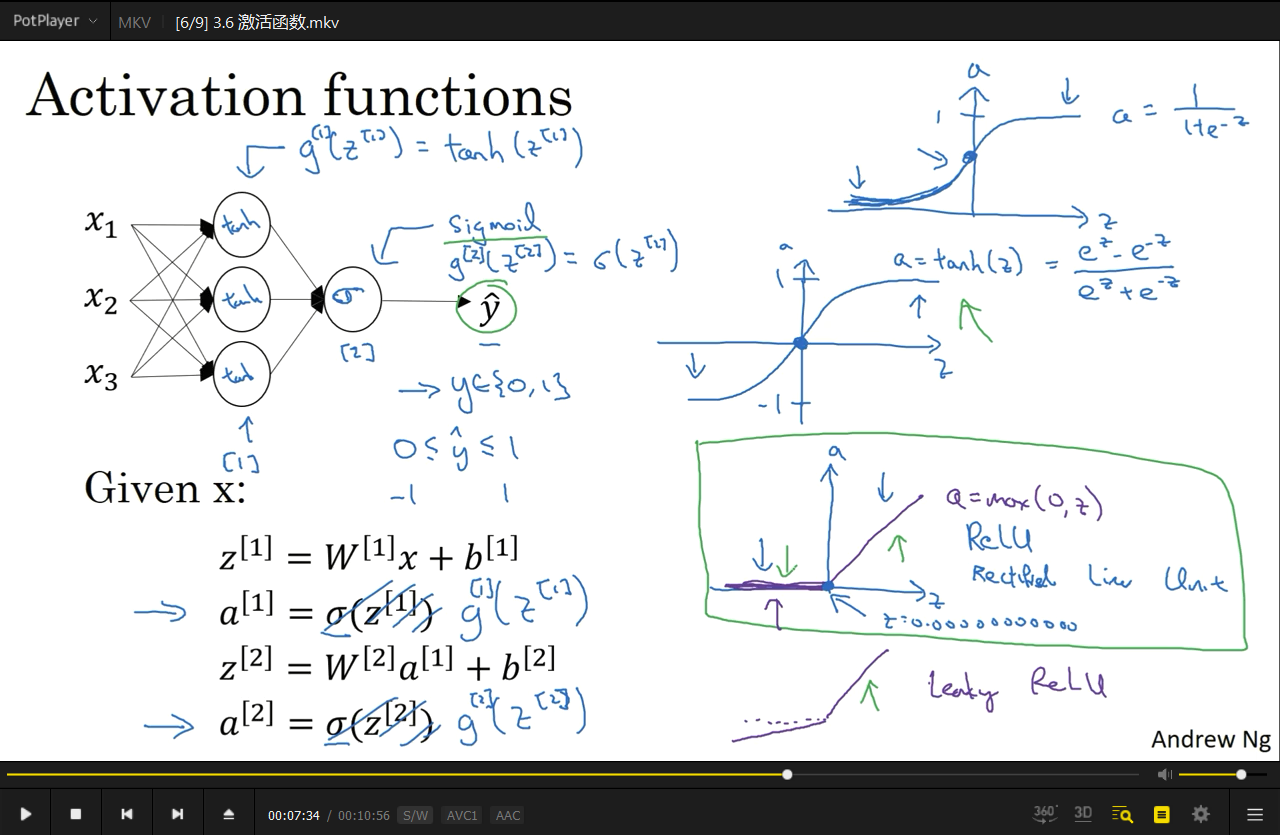 PotPlayer MKV [6/9] 3.6 激活函数.mkv
Activation functions
g^[1](z^[1]) = tanh(z^[1])
x₁
x₂
x₃
tanh
tanh
tanh
[1]
σ
[2]
sigmoid
g^[2](z^[2]) = σ(z^[2])
ŷ
→ y∈{0,1}
0 ≤ ŷ ≤ 1
-1 1
Given x:
z^[1] = W^[1]x + b^[1]
→ a^[1] = σ(z^[1]) g^[1](z^[1])
z^[2] = W^[2]a^[1] + b^[2]
→ a^[2] = σ(z^[2]) g^[2](z^[2])
a
1
z
a = 1/(1+e^-z)
a
1
-1
z
a = tanh(z) = (e^z - e^-z)/(e^z + e^-z)
a
z
a = max(0,z)
ReLU
Rectified Linear Unit
z=0.00000000000
Leaky ReLU
Andrew Ng
00:07:34 / 00:10:56 S/W AVC1 AAC
360° 3D